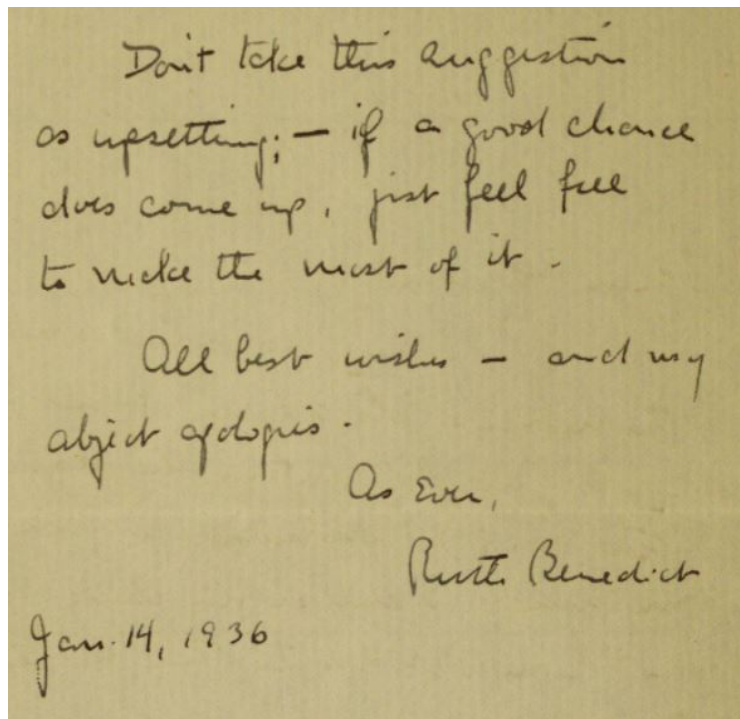 Don't take this suggestion
as upsetting; — if a good chance
does come up, just feel free
to make the most of it.
All best wishes — and my
abject apologies.
As Ever,
Ruth Benedict
Jan. 14, 1936